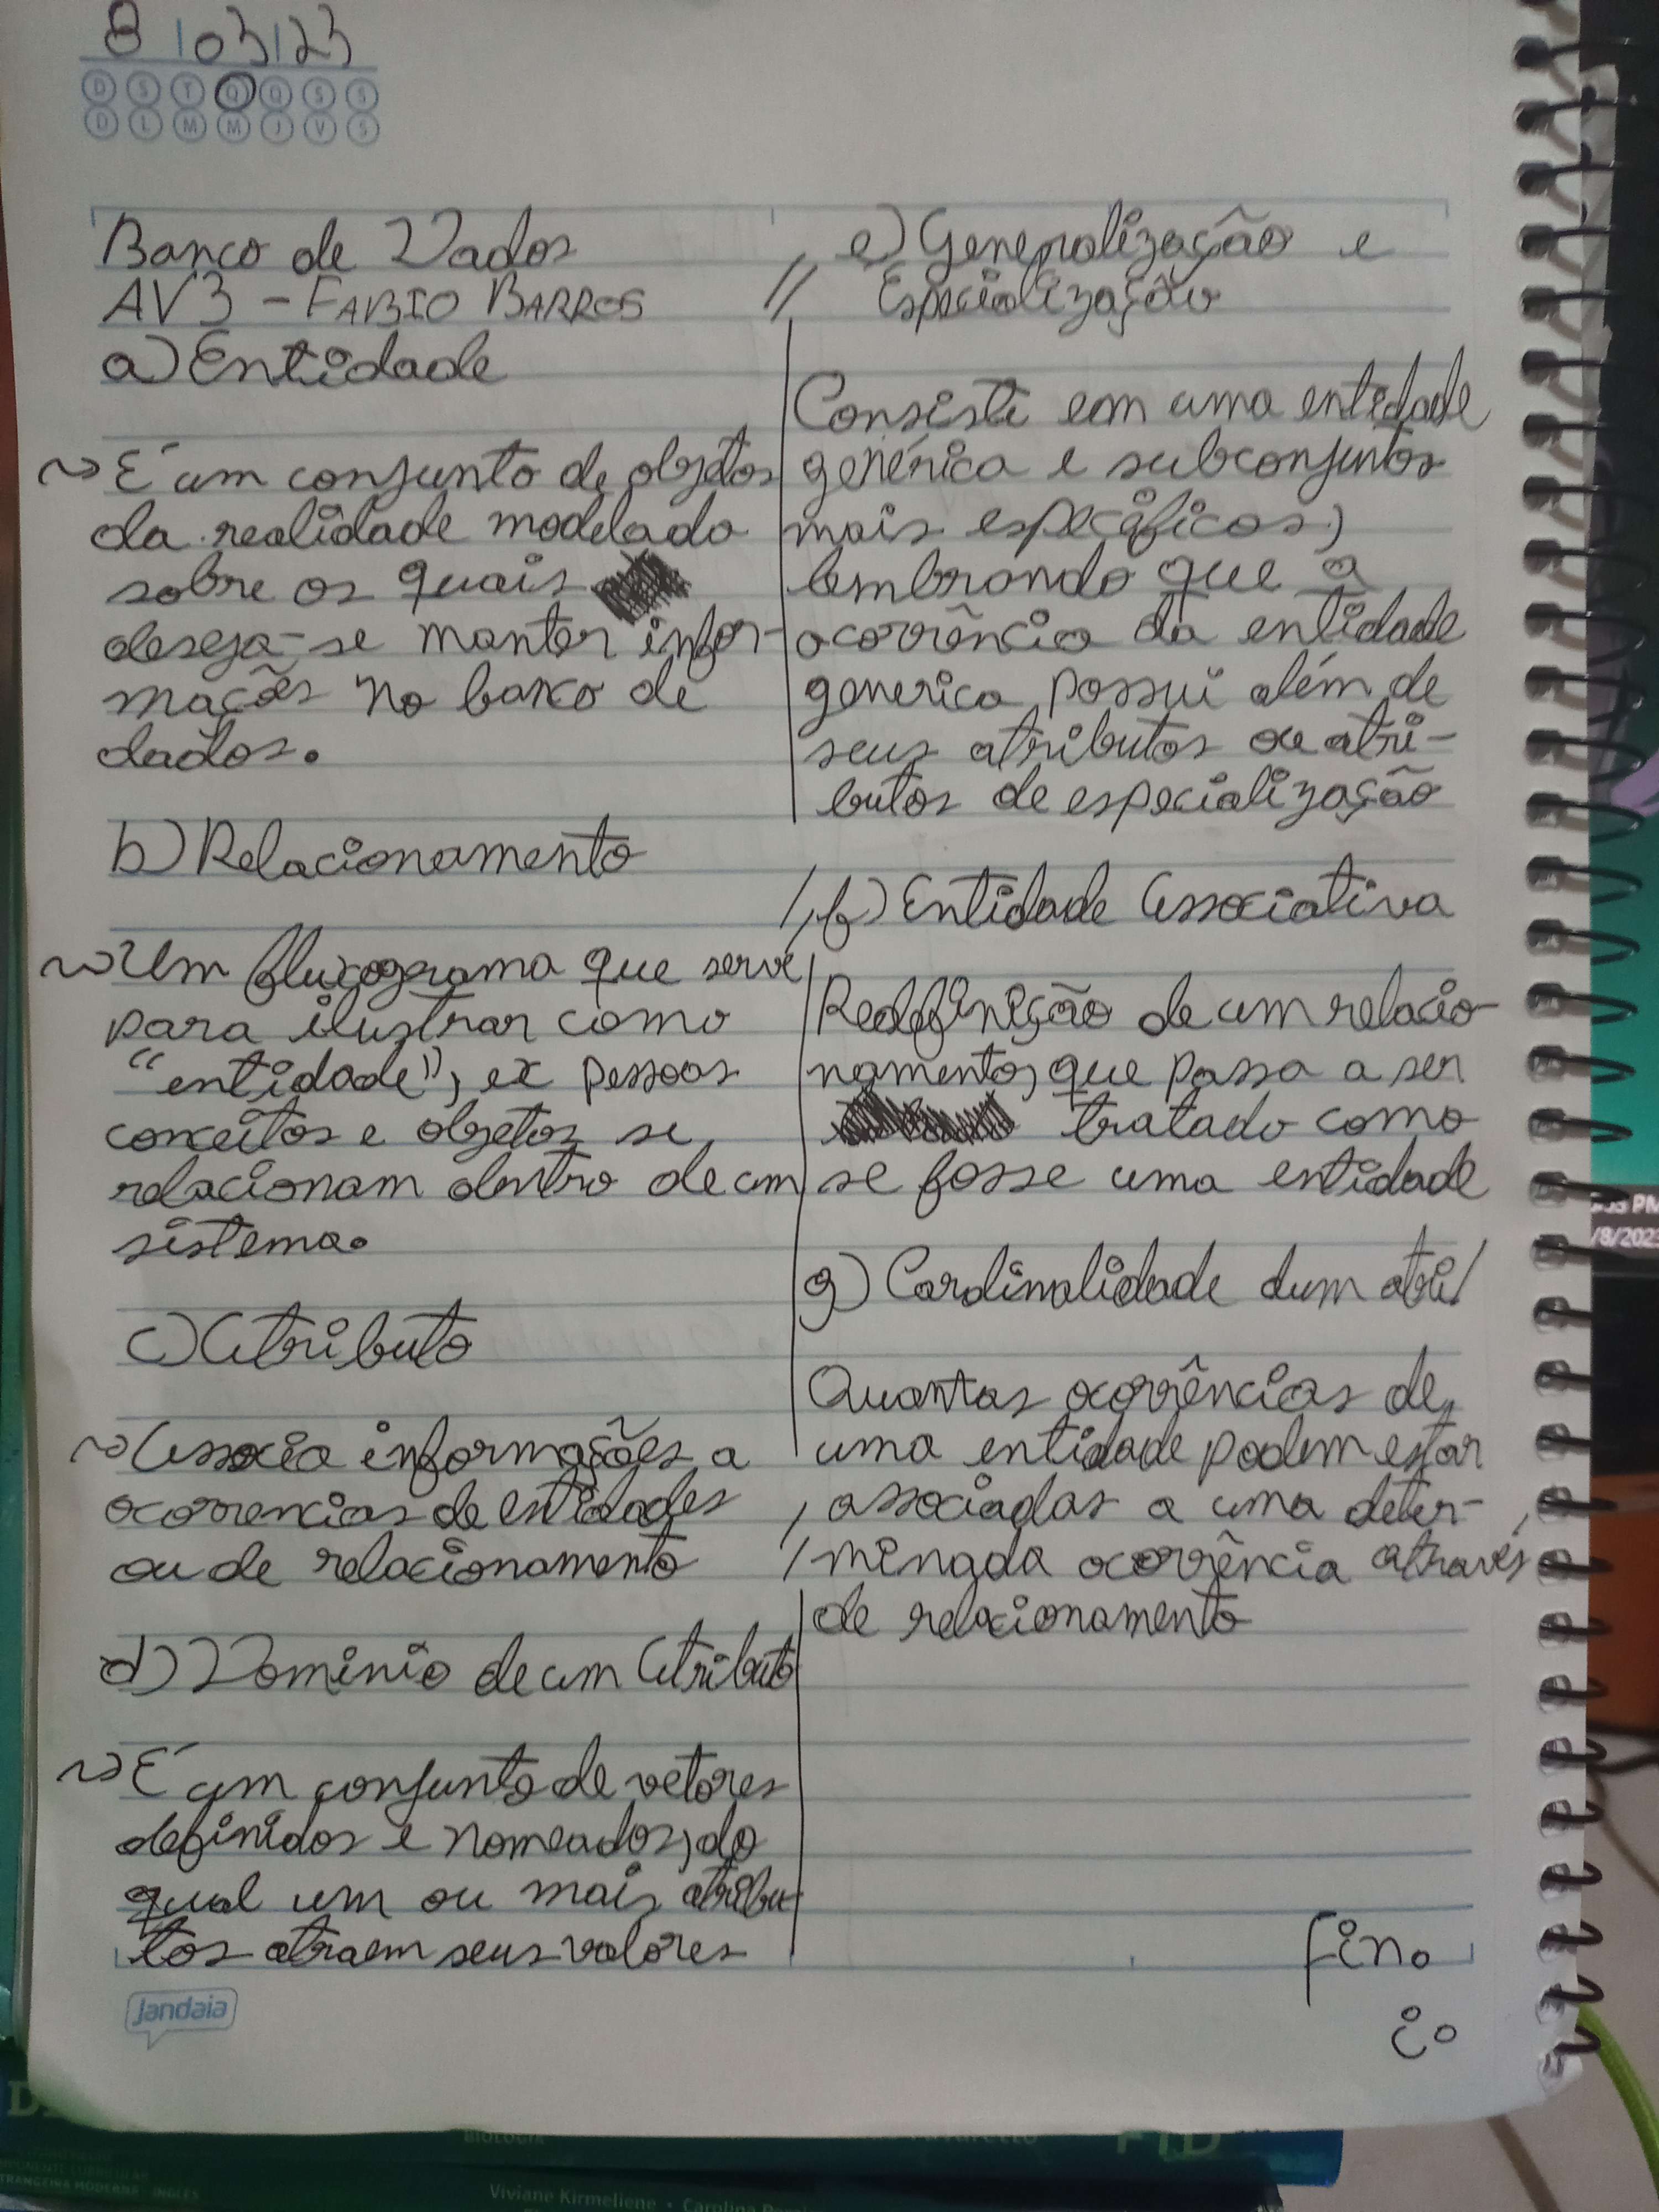 8 03 23
D S T Q Q S S
D L M M J V S
Banco de Dados
AV3 - FABIO BARROS
a) Entidade
~> É um conjunto de objetos
da realidade modelado
sobre os quais
deseja-se manter infor-
mações no banco de
dados.
b) Relacionamento
~> Um fluxograma que serve
para ilustrar como
"entidade", ex pessoas
conceitos e objetos se
relacionam dentro de um
sistema.
c) Atributo
~> Associa informações a
ocorrencias de entidades
ou de relacionamento
d) Dominio de um Atributo
~> É um conjunto de vetores
definidos e nomeados, do
qual um ou mais atribu-
tos atraem seus valores
e) Generalização e
Especialização
Consiste em uma entidade
genérica e subconjuntos
mais específicos,
lembrando que a
ocorrência da entidade
generica possui além de
seus atributos ou atri-
butos de especialização
f) Entidade Associativa
Redefinição de um relacio-
namento, que passa a ser
tratado como
se fosse uma entidade
g) Cardinalidade dum atri/
Quantas ocorrências de
uma entidade podem estar
associadas a uma deter-
minada ocorrência através
de relacionamento
fin.
Jandaia
PM
/8/202
BIOLOGIA
FTD
Viviane Kirmeliene • Carolina